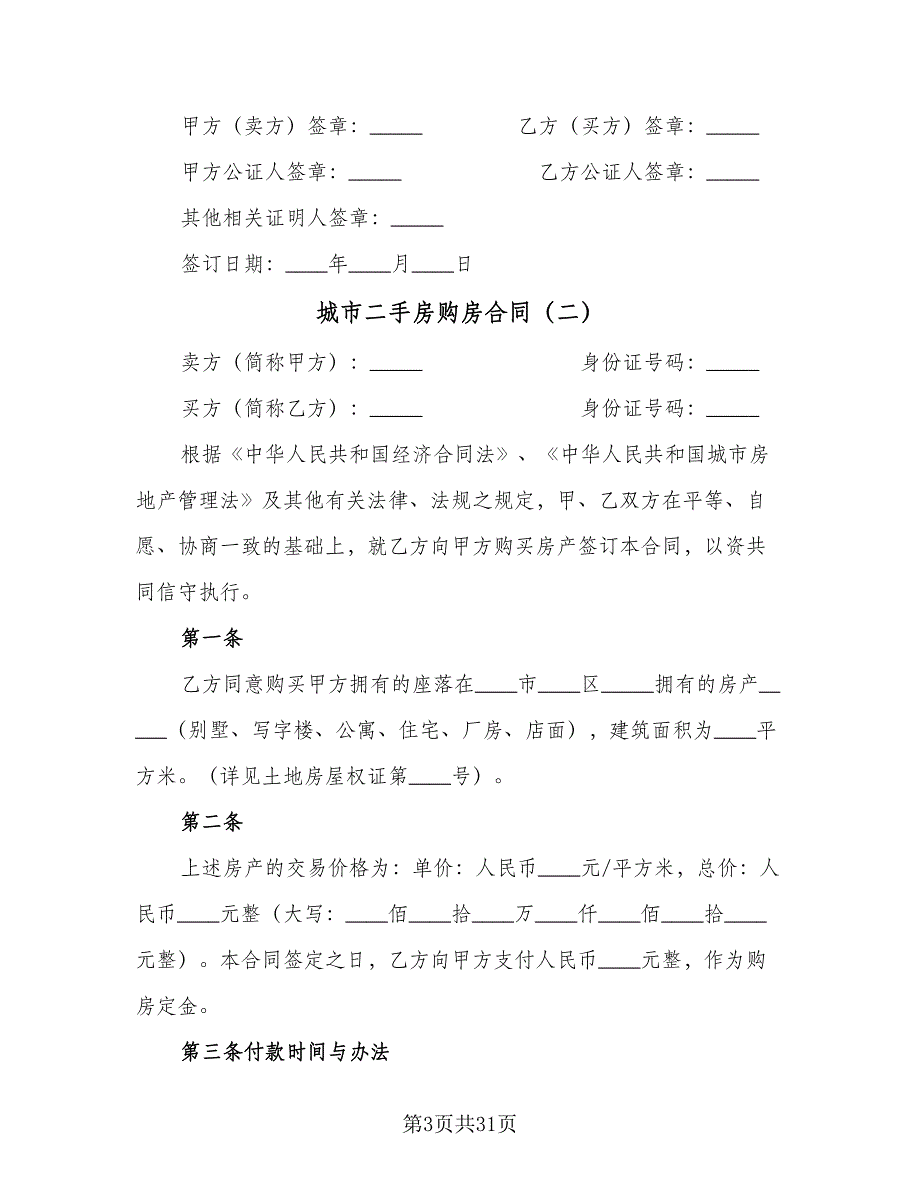 甲方（卖方）签章：_____ 乙方（买方）签章：_____
甲方公证人签章：_____ 乙方公证人签章：_____
其他相关证明人签章：_____
签订日期：____年____月____日
城市二手房购房合同（二）
卖方（简称甲方）：_____ 身份证号码：_____
买方（简称乙方）：_____ 身份证号码：_____
根据《中华人民共和国经济合同法》、《中华人民共和国城市房
地产管理法》及其他有关法律、法规之规定，甲、乙双方在平等、自
愿、协商一致的基础上，就乙方向甲方购买房产签订本合同，以资共
同信守执行。
第一条
乙方同意购买甲方拥有的座落在____市____区_____拥有的房产__
___（别墅、写字楼、公寓、住宅、厂房、店面），建筑面积为____平
方米。（详见土地房屋权证第____号）。
第二条
上述房产的交易价格为：单价：人民币____元/平方米，总价：人
民币____元整（大写：____佰____拾____万____仟____佰____拾____
元整）。本合同签定之日，乙方向甲方支付人民币____元整，作为购
房定金。
第三条付款时间与办法
第3页共31页